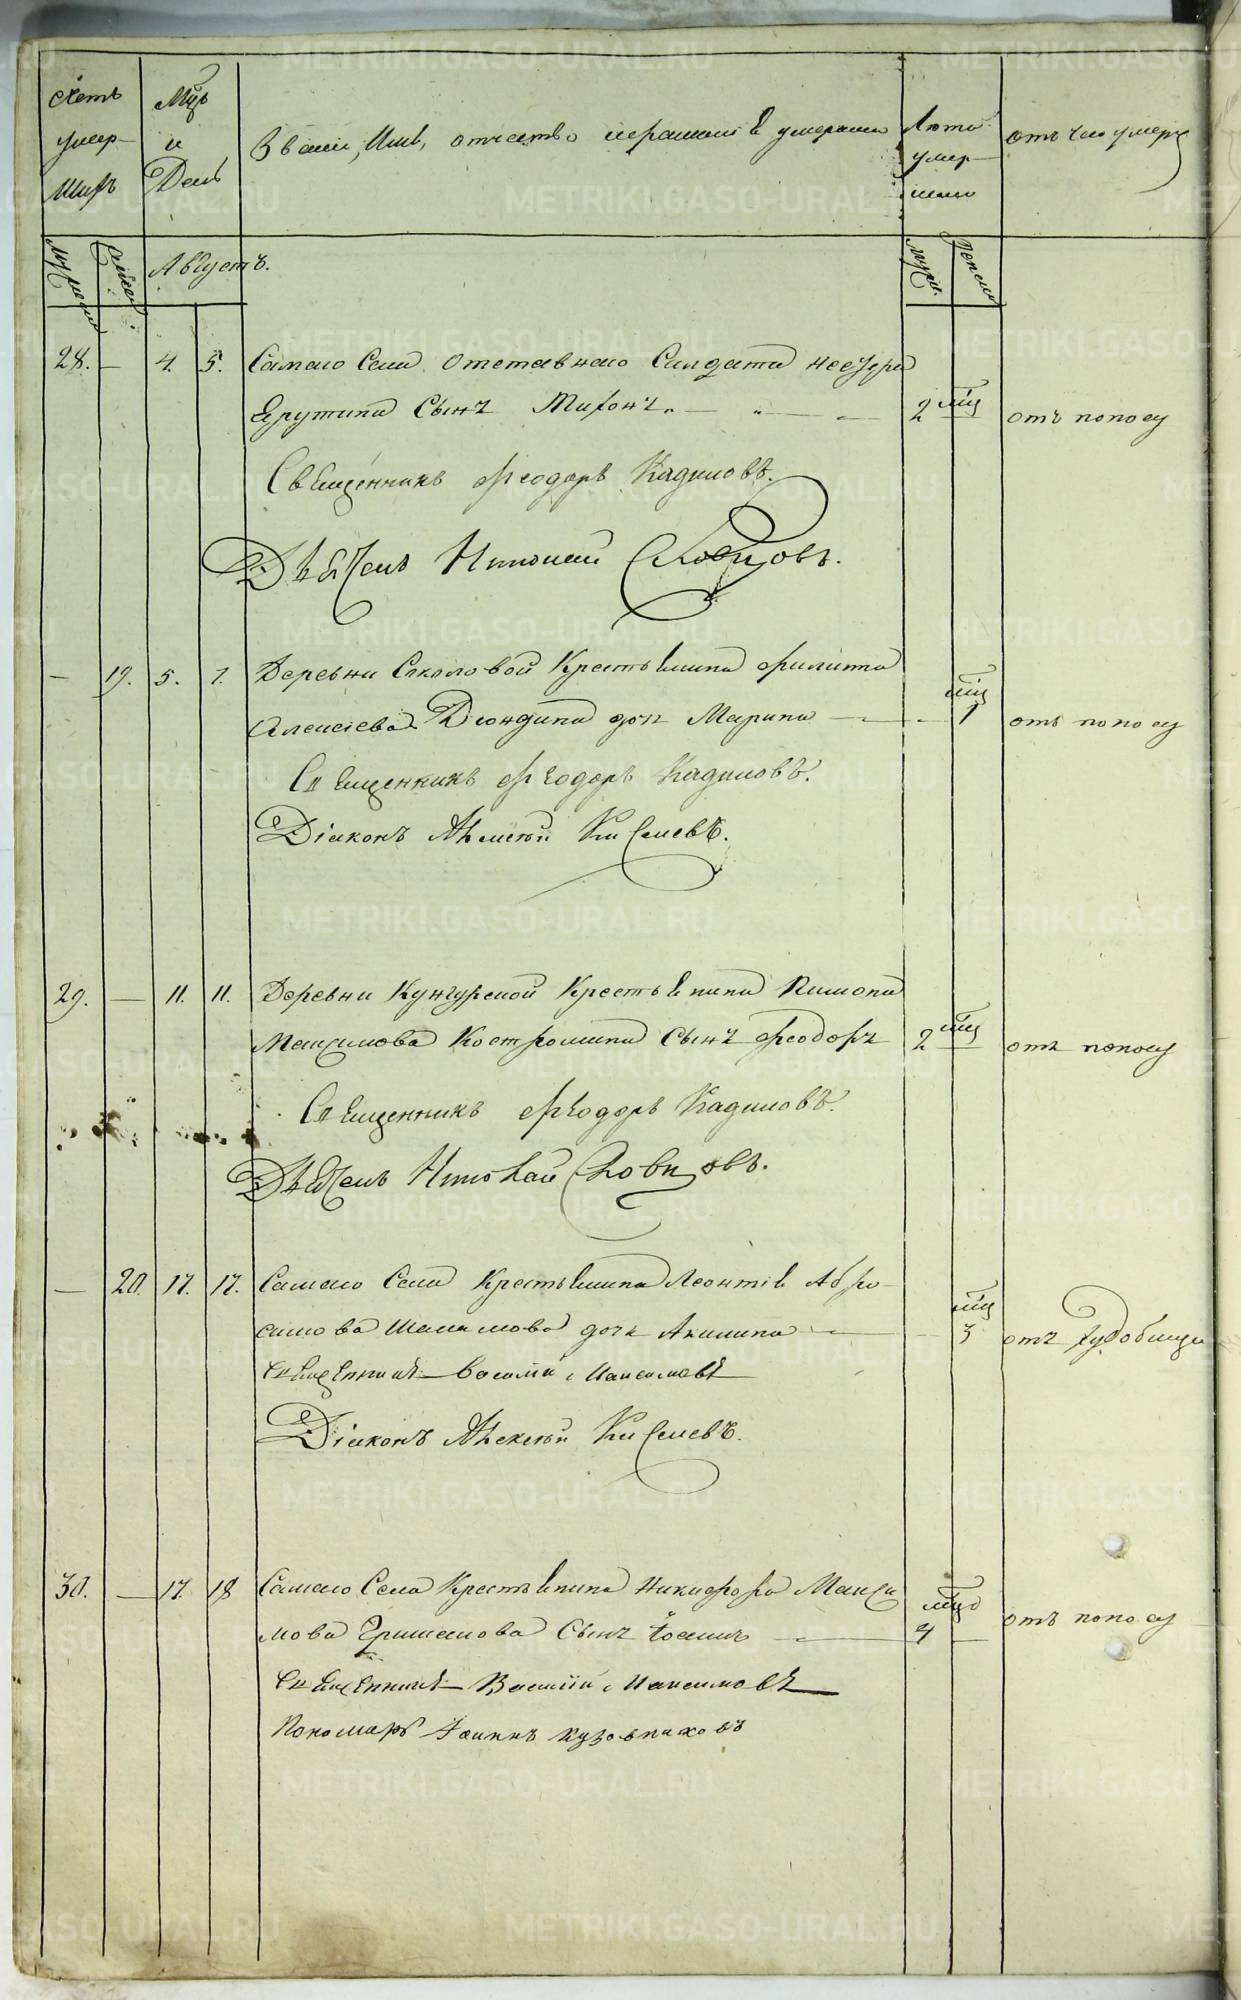 Счетъ умер-шихъ
Мцъ и День
Званiе, Имя, отчество и фамилiи умершихъ
Лета умер-шихъ
отъ чего умеръ
Августъ.
28. — 4. 5. Самаго Села отставнаго Салдата
Ерутина Сынъ Миронъ 2 мц отъ поносу
Священникъ Феодоръ Кадшовъ.
Дьячекъ Николай Словцовъ.
— 19. 5. 7. Деревни Соколовой Крестьянина Филипа
Алексѣева Дюндина дочь Марина — мц 1 отъ поносу
Священникъ Феодоръ Кадшовъ.
Дiаконъ Алексѣй Киселевъ.
29. — 11. 11. Деревни Кунгурской Крестьянина
Максимова Костромина Сынъ Феодоръ 2 мц отъ поносу
Священникъ Феодоръ Кадшовъ.
Дьячекъ Николай Словцовъ.
— 20. 17. 17. Самаго Села Крестьянина Леонтiя Абро-
симова Шаламова дочь Акилина — мц 3 отъ худобищи
Священникъ Василiй Максимовъ
Дiаконъ Алексѣй Киселевъ.
30. — 17. 18 Самаго Села Крестьянина Никифора Макси
мова Сынъ Iоаннъ — мцъ 4 — отъ поносу
Священникъ Василiй Максимовъ
Пономарь Iоаннъ Кузовниковъ
METRIKI.GASO-URAL.RU